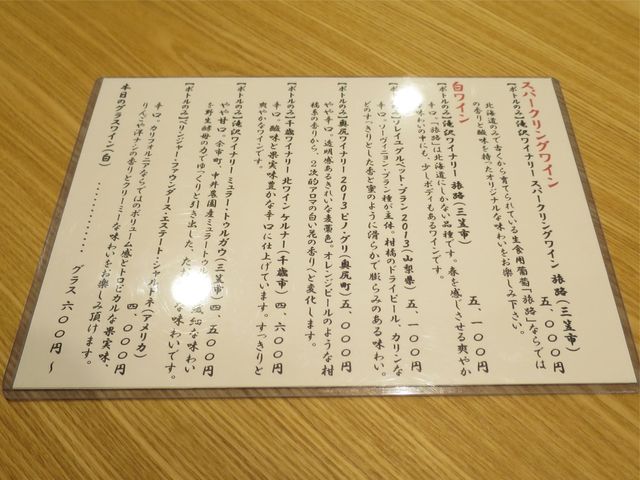 スパークリングワイン
【ボトルのみ】滝沢ワイナリー スパークリングワイン 旅路(三笠市)
五、〇〇〇円
北海道のみで古くから育てられている生食用葡萄「旅路」ならでは
の香りと酸味を持ったオリジナルな味わいをお楽しみ下さい。
白ワイン
【ボトルのみ】滝沢ワイナリー 旅路(三笠市)
五、一〇〇円
辛口。「旅路」は北海道にしかない品種です。春を感じさせる爽やか
な味わいの中にも、少しボディもあるワインです。
【ボトルのみ】ソレイユプルベットブラン2013(山梨県)
五、一〇〇円
辛口。ソーヴィニョン・ブラン種が主体。柑橘のドライピール、カリンな
どのすっきりとした香と蜜のように滑らかで膨らみのある味わい。
【ボトルのみ】奥尻ワイナリー2013ピノ・グリ(奥尻町)五、〇〇〇円
やや辛口。透明感あるきれいな麦藁色。オレンジピールのような柑
橘系の香りから、2次的アロマの白い花の香りへと変化します。
【ボトルのみ】千歳ワイナリー 北ワイン ケルナー(千歳市)四、六〇〇円
辛口。酸味と果実味豊かな辛口に仕上げています。すっきりと
爽やかなワインです。
【ボトルのみ】滝沢ワイナリー ミュラー・トゥルガウ(三笠市)四、五〇〇円
やや甘口。余市町、中井農園産ミュラートゥル
を野生酵母の力でゆっくりと引き出した、
繊細な味わい
な味わいです。
【ボトルのみ】ベリンジャー・ファウンダース・エステート・シャルドネ(アメリカ)
四、〇〇〇円
辛口。カリフォルニアならではのボリューム感とトロピカルな果実味、
りんごや洋ナシの香りとクリーミーな味わいをお楽しみ頂けます。
本日のグラスワイン(白) ・・・・・・・・・・・・・ グラス六〇〇円~